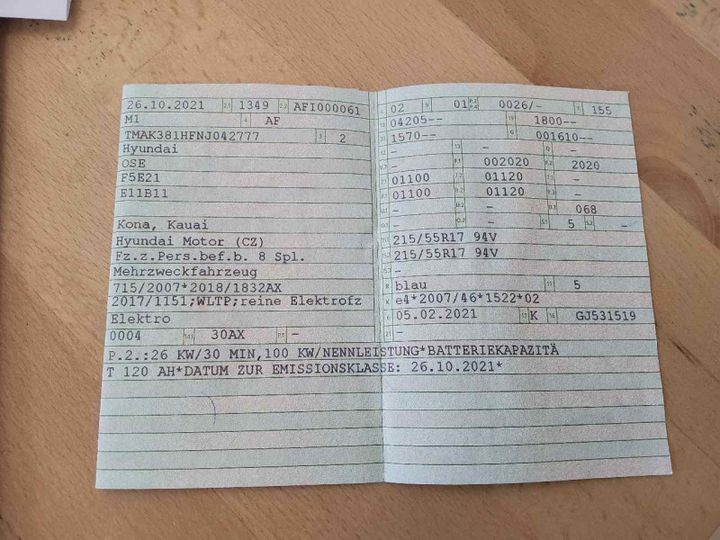 26.10.2021 2.1 1349 2.2 AFI000061
M1 4 AF
TMAK381HFNJ042777 3 2
Hyundai
OSE
F5E21
E11B11
Kona, Kauai
Hyundai Motor (CZ)
Fz.z.Pers.bef.b. 8 Spl.
Mehrzweckfahrzeug
715/2007*2018/1832AX
2017/1151;WLTP;reine Elektrofz
Elektro
0004 30AX -
P.2.:26 KW/30 MIN,100 KW/NENNLEISTUNG*BATTERIEKAPAZITÄ
T 120 AH*DATUM ZUR EMISSIONSKLASSE: 26.10.2021*
02 9 01 P.2 P.4 0026/- T 155
04205-- 1800--
1570-- G 001610--
- - -
- 002020 2020
01100 01120 -
01100 01120 -
- - 068
- - 5 -
215/55R17 94V
215/55R17 94V
-
R blau 11 5
K e4*2007/46*1522*02
6 05.02.2021 17 K 16 GJ531519
21 -